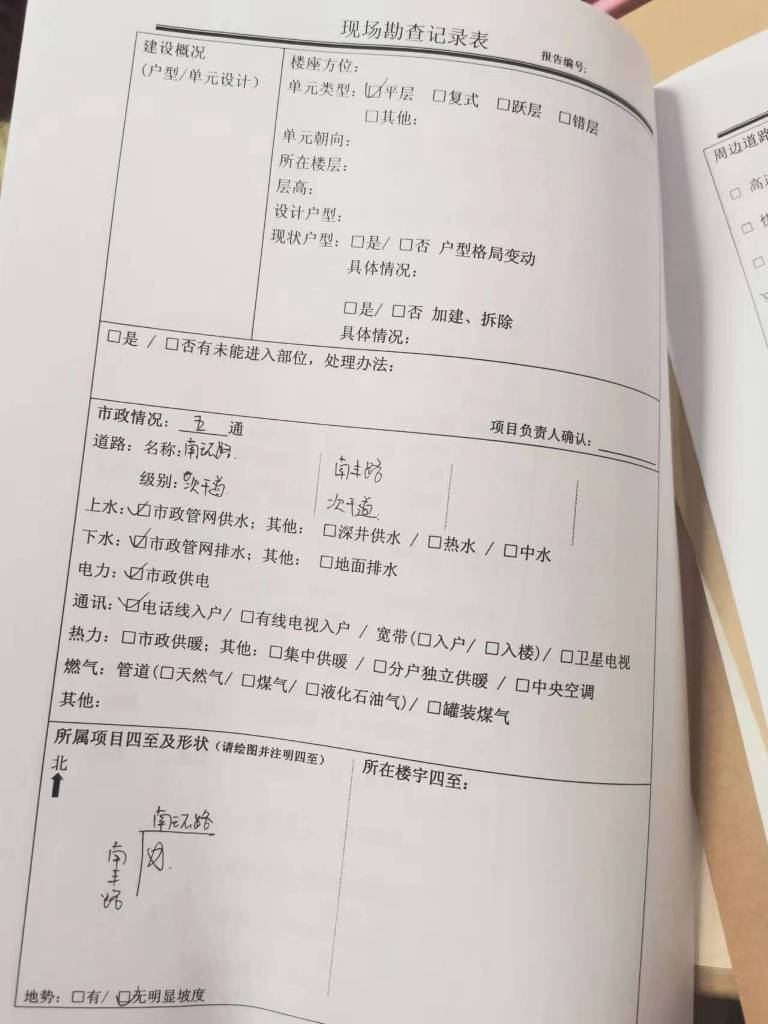 现场勘查记录表
报告编号:
建设概况
(户型/单元设计)
楼座方位:
单元类型: ☑平层 □复式 □跃层 □错层
□其他:
单元朝向:
所在楼层:
层高:
设计户型:
现状户型: □是/ □否 户型格局变动
具体情况:
□是/ □否 加建、拆除
具体情况:
□是 / □否有未能进入部位, 处理办法:
项目负责人确认:
市政情况: 五 通
道路: 名称: 南环路 南丰路
级别: 次干道 次干道
上水: ☑市政管网供水; 其他: □深井供水 / □热水 / □中水
下水: ☑市政管网排水; 其他: □地面排水
电力: ☑市政供电
通讯: ☑电话线入户/ □有线电视入户 / 宽带(□入户/ □入楼)/ □卫星电视
热力: □市政供暖; 其他: □集中供暖 / □分户独立供暖 / □中央空调
燃气: 管道(□天然气/ □煤气/ □液化石油气)/ □罐装煤气
其他:
所属项目四至及形状 (请绘图并注明四至)
所在楼宇四至:
北
南环路
南丰路
地势: □有/ ☑无明显坡度
周边道路
□ 高
□
□